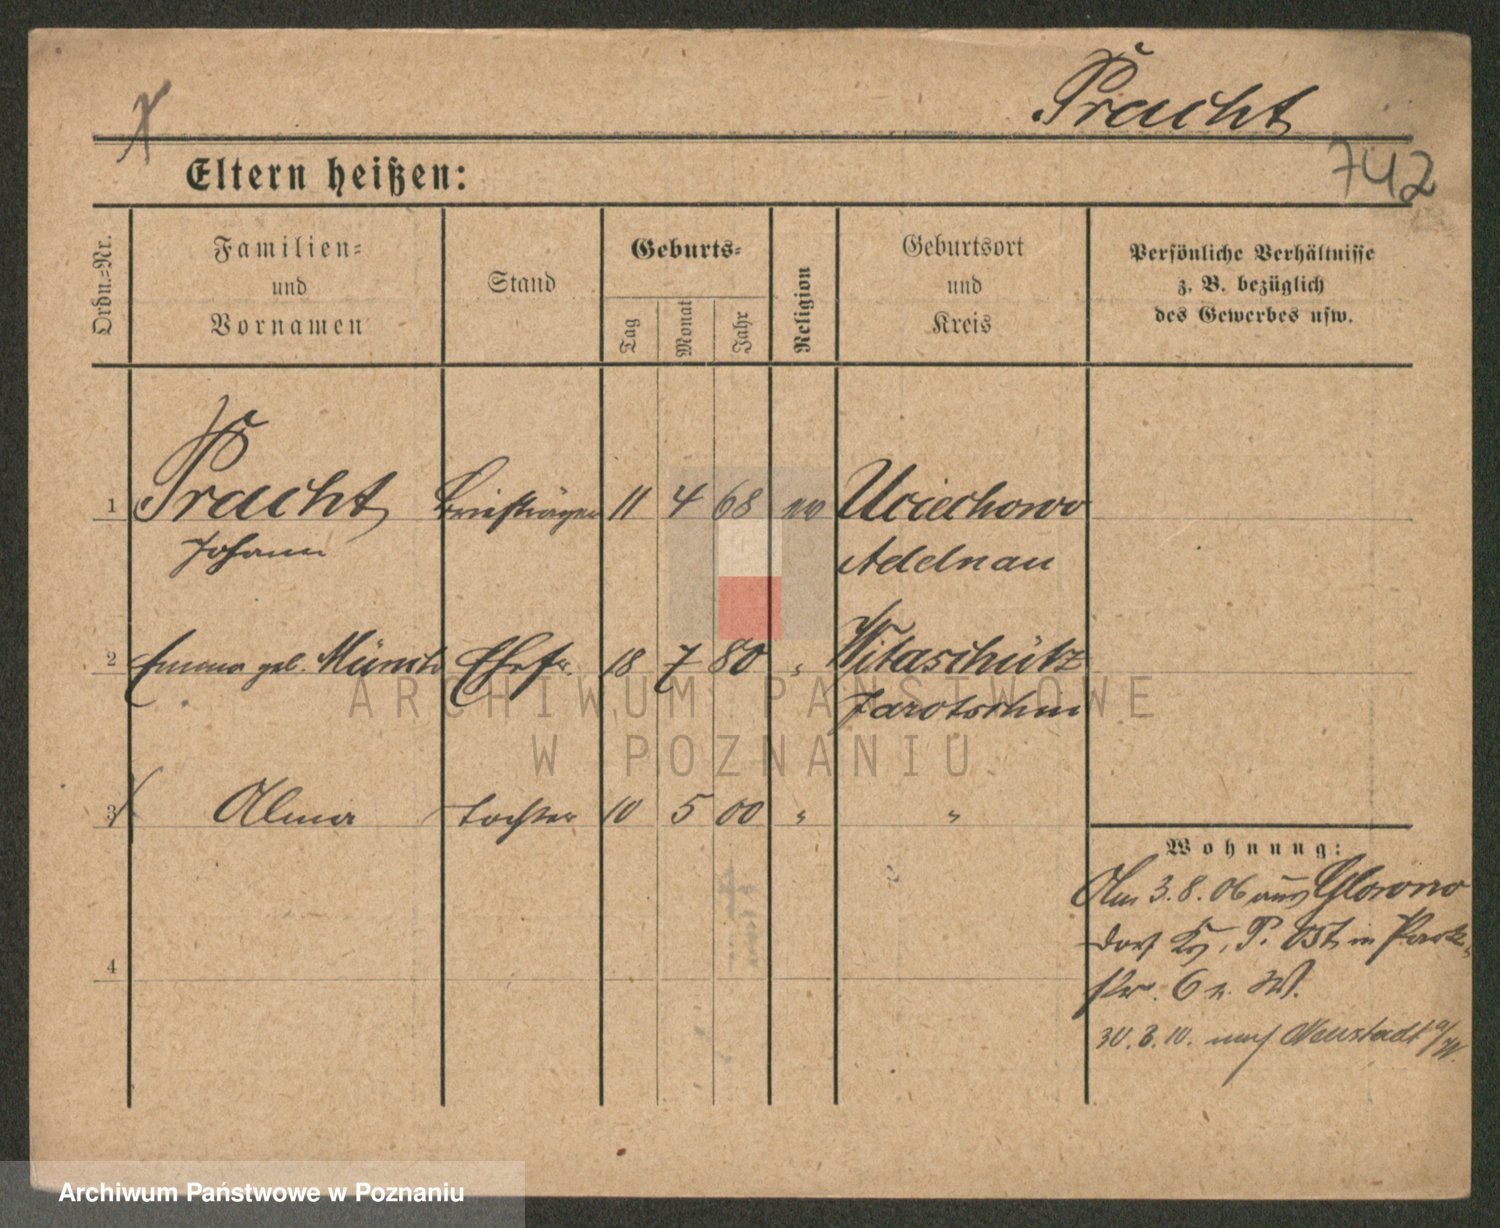 Pracht
742
Eltern heißen:
Ordn.-Nr.
Familien-
und
Vornamen
Stand
Geburts-
Tag
Monat
Jahr
Religion
Geburtsort
und
Kreis
Persönliche Verhältnisse
z. B. bezüglich
des Gewerbes usw.
1 Pracht Briefträger 11 4 68 Uciechowo
Johann Adelnau
2 Emma geb. Münch Ehefr. 18 7 80 " Witaschütz
Jarotschin
3 Alma Tochter 10 5 00 " "
Wohnung:
Am 3.8.06 aus Glowno
dorf Kr. P. Ost in Park-
str. 6 e. W.
4
30.3.10. nach Neustadt a/W.
ARCHIWUM PAŃSTWOWE
W POZNANIU
Archiwum Państwowe w Poznaniu